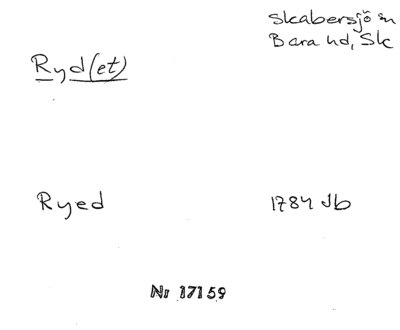 Skabersjö sn
Bara hd, Sk
Ryd(et)
Ryed
1784 Jb
Nr 17159